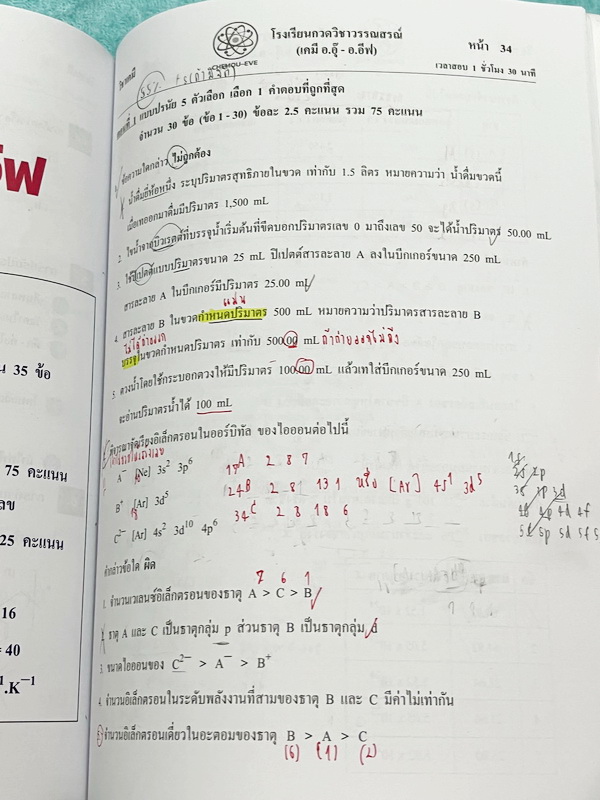 โรงเรียนกวดวิชาวรรณสรณ์
(เคมี อ.อุ๊ - อ.อีฟ)
หน้า 34
CHEMOU-EVE
วิชาเคมี
เวลาสอบ 1 ชั่วโมง 30 นาที
ตอนที่ 1 แบบปรนัย 5 ตัวเลือก เลือก 1 คำตอบที่ถูกที่สุด
จำนวน 30 ข้อ (ข้อ 1 - 30) ข้อละ 2.5 คะแนน รวม 75 คะแนน
ข้อความใดกล่าว ไม่ถูกต้อง
น้ำดื่มยี่ห้อหนึ่ง ระบุปริมาตรสุทธิภายในขวด เท่ากับ 1.5 ลิตร หมายความว่า น้ำดื่มขวดนี้
เมื่อเทออกมาดื่มมีปริมาตร 1,500 mL
2. ไขน้ำจากบิวเรตต์ที่บรรจุน้ำเริ่มต้นที่ขีดบอกปริมาตรเลข 0 มาถึงเลข 50 จะได้น้ำปริมาตร 50.00 mL
3. ใช้ปิเปตต์แบบปริมาตรขนาด 25 mL ปิเปตต์สารละลาย A ลงในบีกเกอร์ขนาด 250 mL
สารละลาย A ในบีกเกอร์มีปริมาตร 25.00 mL
แม่น
4. สารละลาย B ในขวดกำหนดปริมาตร 500 mL หมายความว่าปริมาตรสารละลาย B
บรรจุในขวดกำหนดปริมาตร เท่ากับ 500.00 mL ถ้าถ่ายออกไม่ถึง
5. ตวงน้ำโดยใช้กระบอกตวงให้มีปริมาตร 100.00 mL แล้วเทใส่บีกเกอร์ขนาด 250 mL
จะอ่านปริมาตรน้ำได้ 100 mL
พิจารณาจัดเรียงอิเล็กตรอนในออร์บิทัล ของไอออนต่อไปนี้
A⁻ [Ne] 3s² 3p⁶ A 2 8 7
B⁺ [Ar] 3d⁵ 24B 2 8 13 1 หรือ [Ar] 4s¹ 3d⁵
C²⁻ [Ar] 4s² 3d¹⁰ 4p⁶ 34C 2 8 18 6
2s 2p
3s 3p 3d
4s 4p 4d 4f
5s 5p 5d 5f
คำกล่าวข้อใด ผิด
7 6 1
1. จำนวนเวเลนซ์อิเล็กตรอนของธาตุ A > C > B
ธาตุ A และ C เป็นธาตุกลุ่ม p ส่วนธาตุ B เป็นธาตุกลุ่ม d
3. ขนาดไอออนของ C²⁻ > A⁻ > B⁺
4. จำนวนอิเล็กตรอนในระดับพลังงานที่สามของธาตุ B และ C มีค่าไม่เท่ากัน
5. จำนวนอิเล็กตรอนเดี่ยวในอะตอมของธาตุ B > A > C
(6) (1) (2)
น 35 ข้อ
75 คะแนน
ลข
25 คะแนน
16
= 40